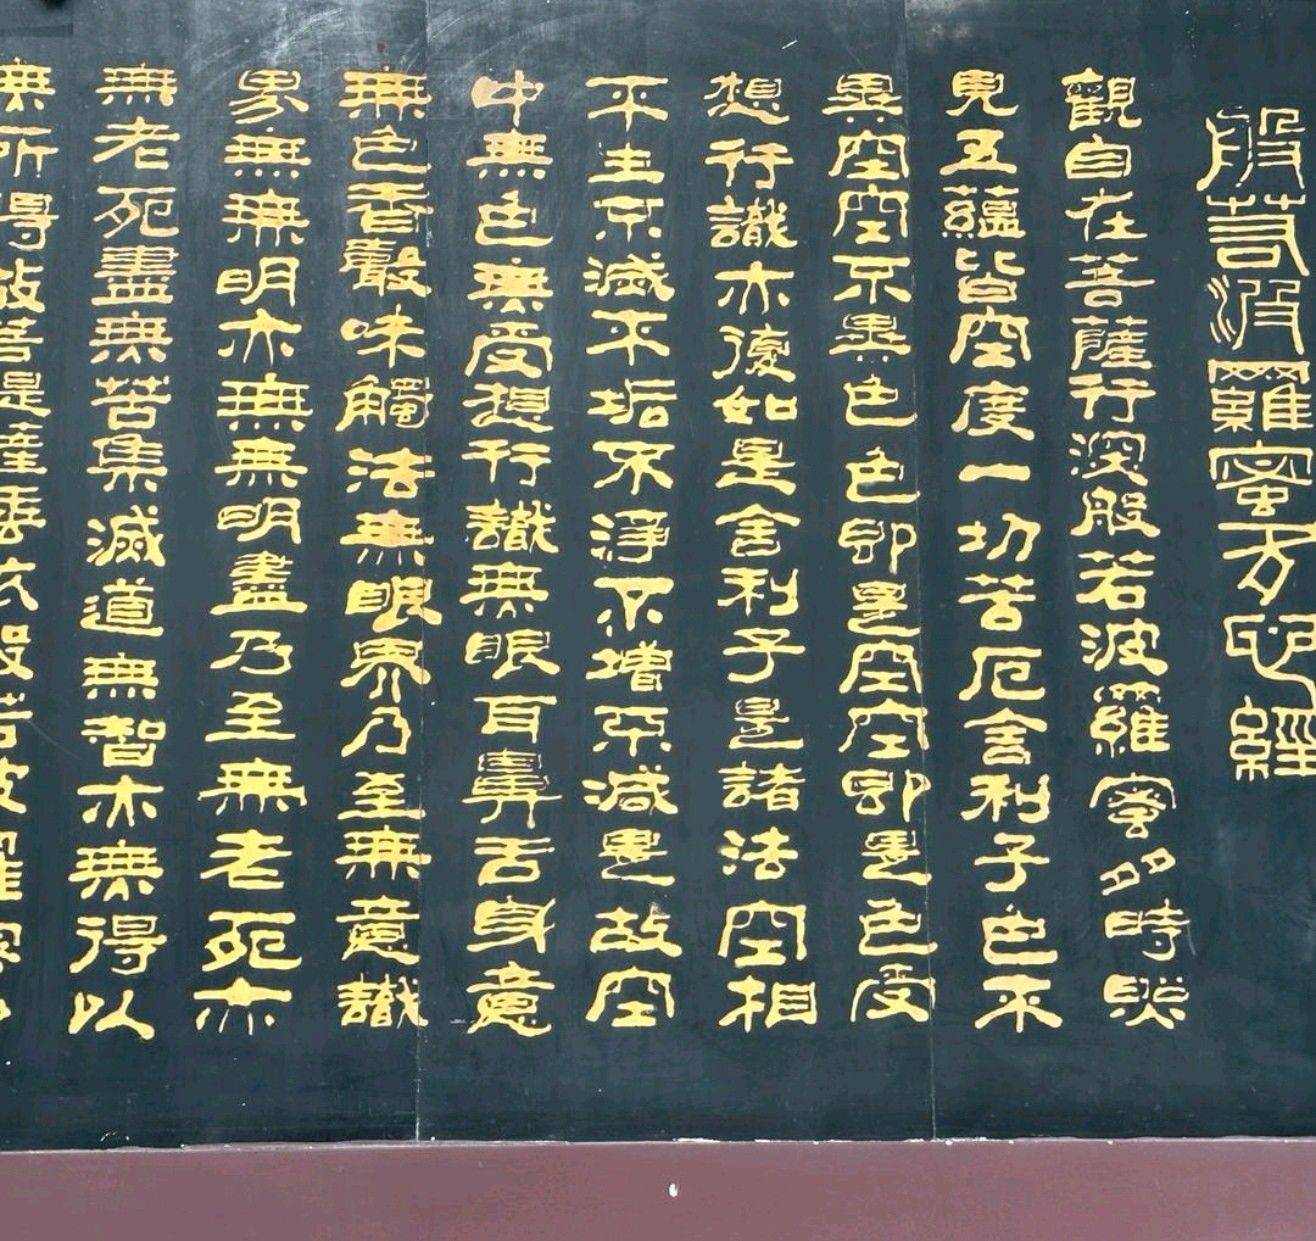 般若波羅蜜多心經
觀自在菩薩行深般若波羅蜜多時照
見五蘊皆空度一切苦厄舍利子色不
異空空不異色色即是空空即是色受
想行識亦復如是舍利子是諸法空相
不生不滅不垢不淨不增不減是故空
中無色無受想行識無眼耳鼻舌身意
無色香聲味觸法無眼界乃至無意識
界無無明亦無無明盡乃至無老死亦
無老死盡無苦集滅道無智亦無得以
無所得故菩提薩埵依般若波羅蜜多